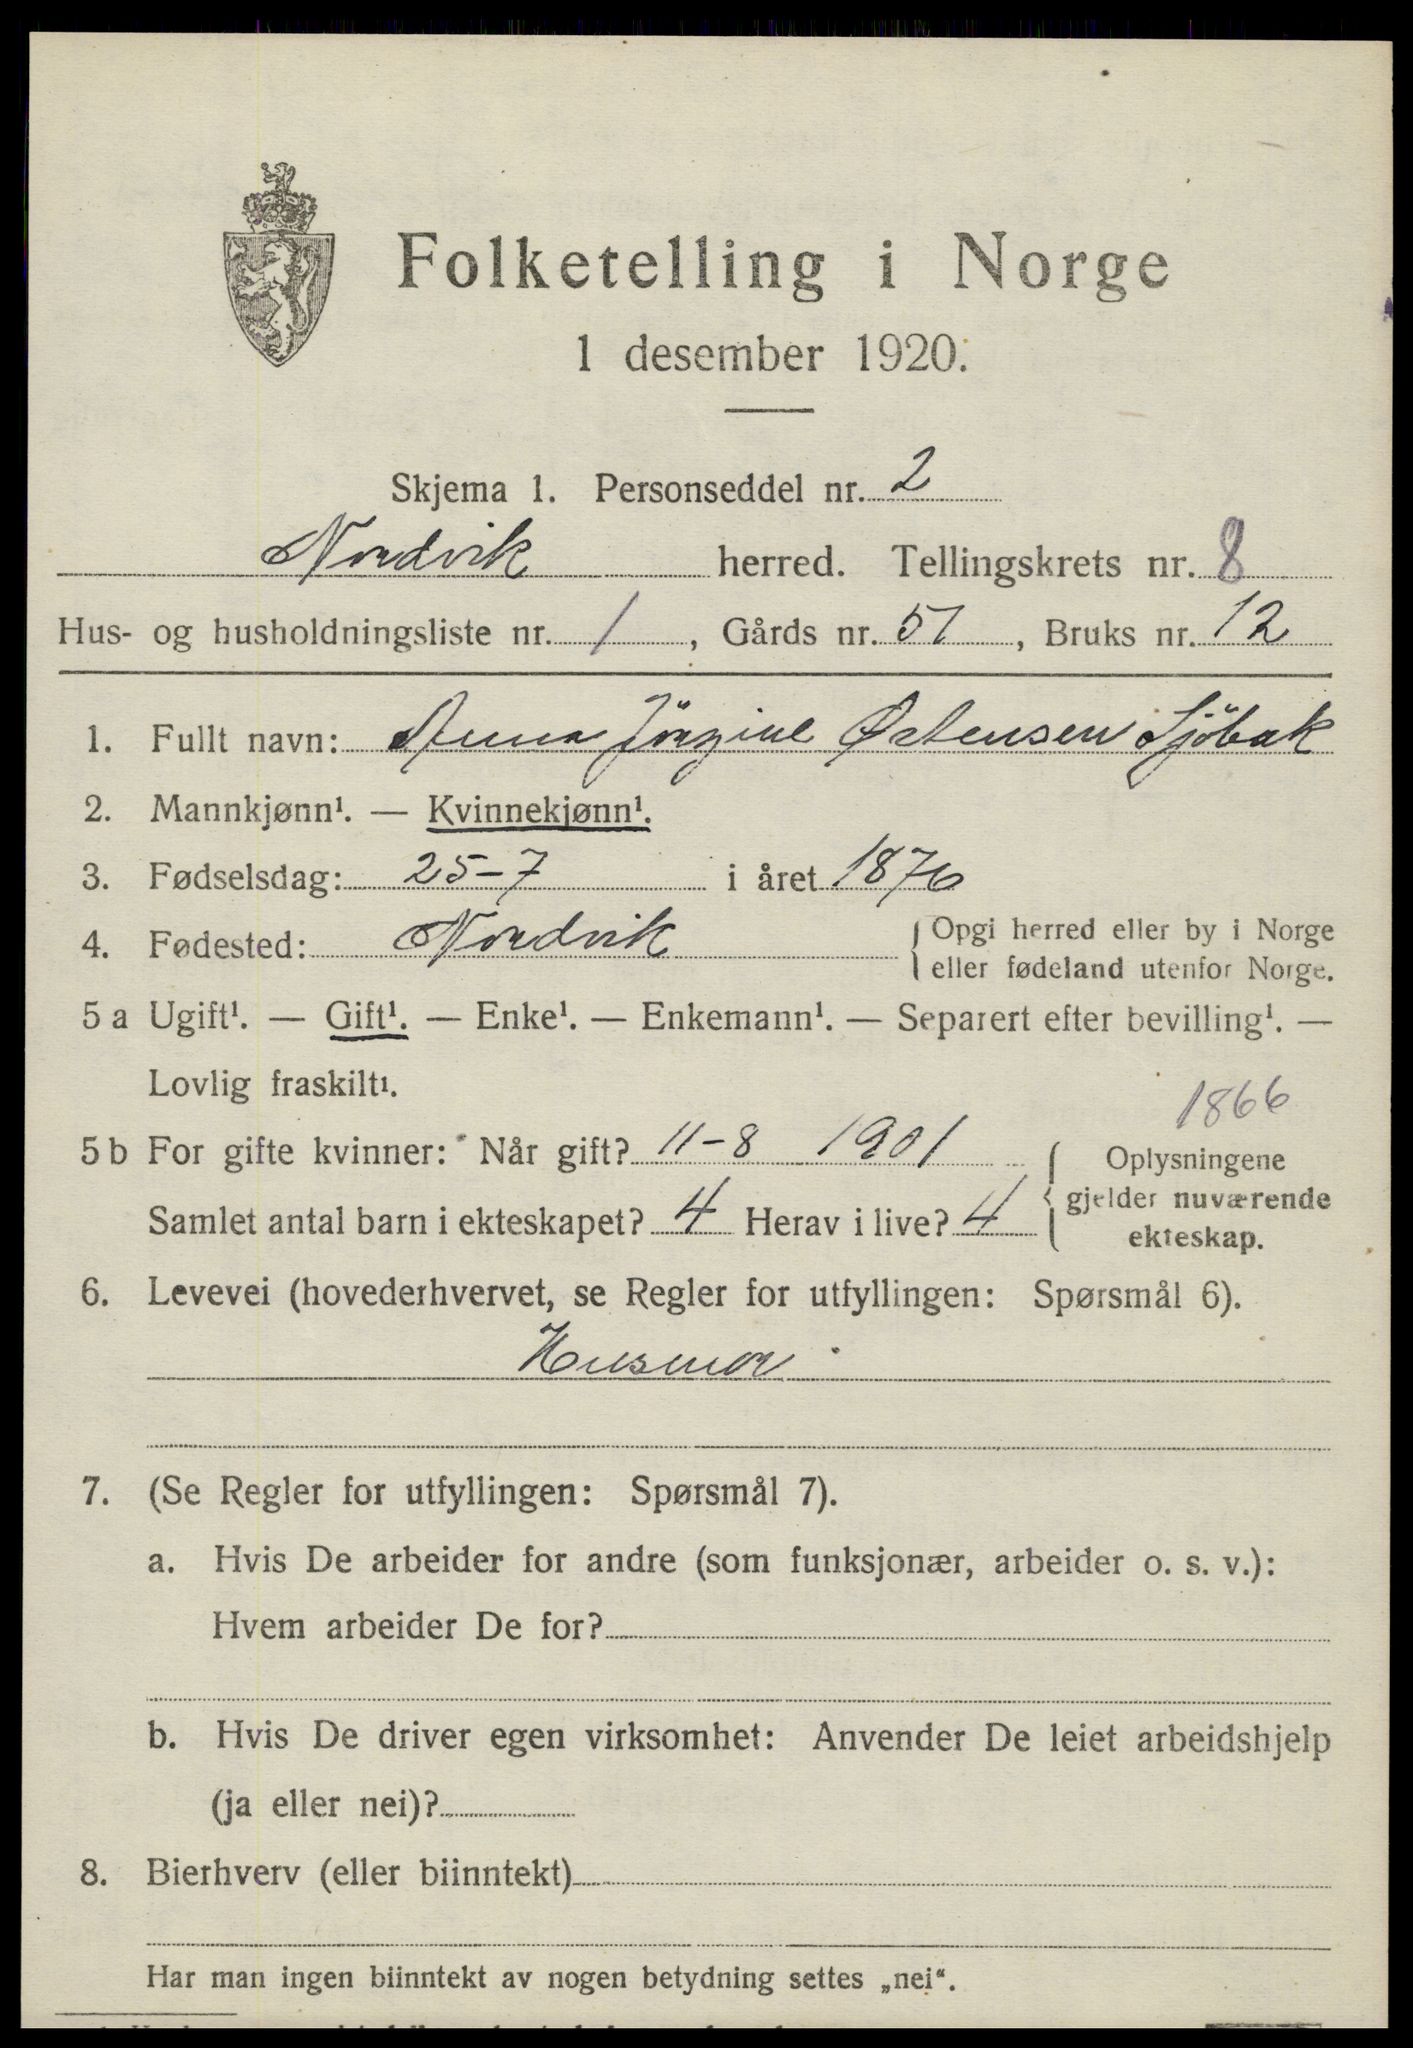 Folketelling i Norge
1 desember 1920.
Skjema 1. Personseddel nr. 2
Nordvik herred. Tellingskrets nr. 8
Hus- og husholdningsliste nr. 1, Gårds nr. 57, Bruks nr. 12
1. Fullt navn: Anna Jörgine Østensen Sjöbak
2. Mannkjønn¹. — Kvinnekjønn¹.
3. Fødselsdag: 25-7 i året 1876
4. Fødested: Nordvik { Opgi herred eller by i Norge
eller fødeland utenfor Norge.
5 a Ugift¹. — Gift¹. — Enke¹. — Enkemann¹. — Separert efter bevilling¹. —
Lovlig fraskilt¹.
1866
5 b For gifte kvinner: Når gift? 11-8 1901 { Oplysningene
gjelder nuværende
Samlet antal barn i ekteskapet? 4 Herav i live? 4
ekteskap.
6. Levevei (hovederhvervet, se Regler for utfyllingen: Spørsmål 6).
Husmor
7. (Se Regler for utfyllingen: Spørsmål 7).
a. Hvis De arbeider for andre (som funksjonær, arbeider o. s. v.):
Hvem arbeider De for?
b. Hvis De driver egen virksomhet: Anvender De leiet arbeidshjelp
(ja eller nei)?
8. Bierhverv (eller biinntekt)
Har man ingen biinntekt av nogen betydning settes „nei“.